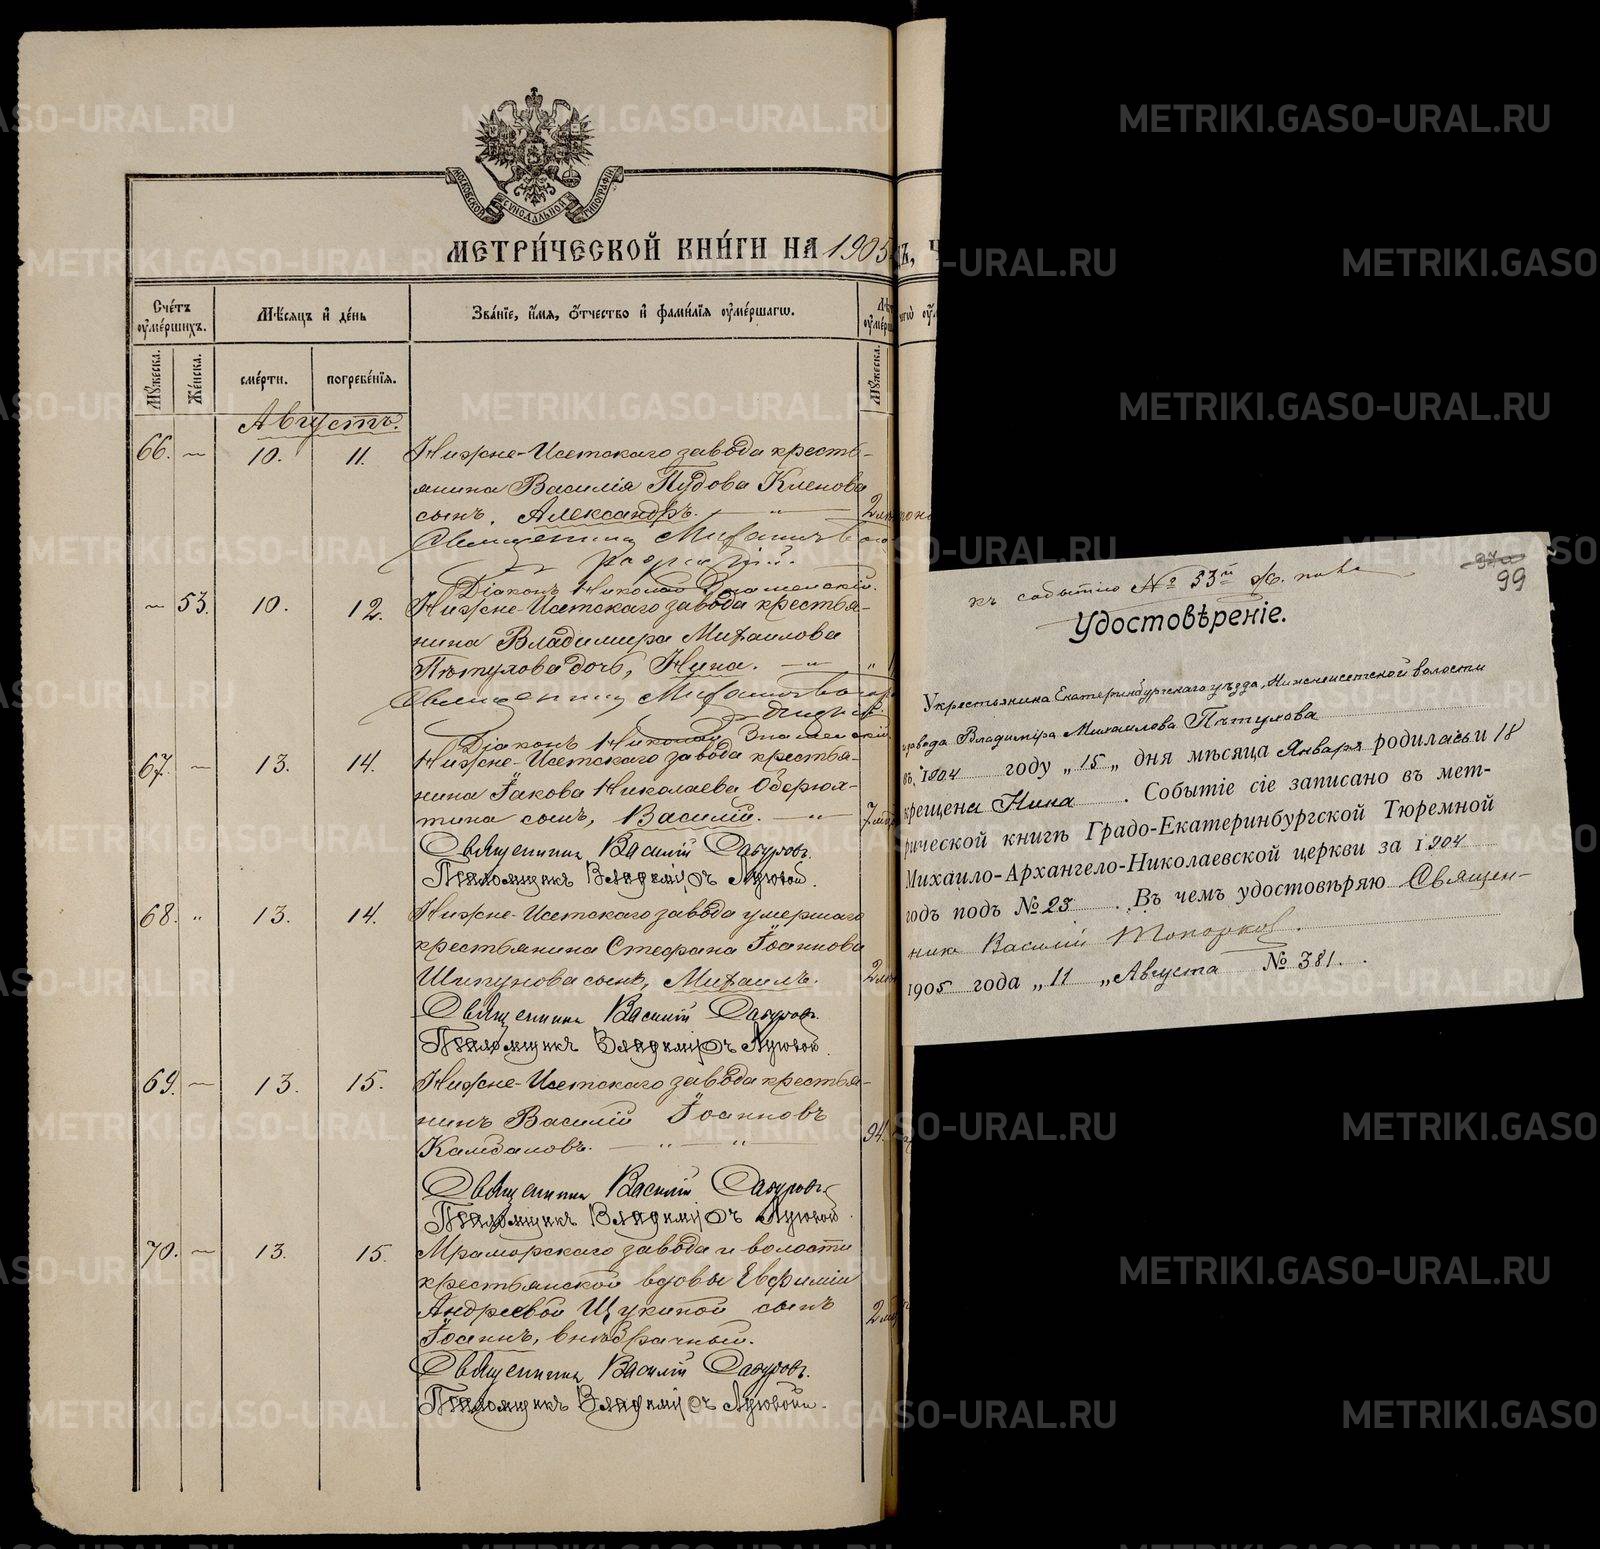 МОСКОВСКОЙ СѴНОДАЛЬНОЙ ТИПОГРАФІИ
МЕТРИ́ЧЕСКОЙ КНИ́ГИ НА 1905
Сче́тъ ᲂу҆ме́ршихъ.
Мѣ́сяцъ и҆ де́нь
Зва́нїе, и҆́мя, ѻ҆́тчество и҆ фами́лїя ᲂу҆ме́ршагѡ.
Мꙋ́жеска.
Же́нска.
сме́рти.
погребе́нїѧ.
Мꙋ́жеска.
Августъ.
66. — 10. 11. Нижне-Исетскаго завода кресть-
янина Василія Пудова Кленова
сынъ, Александръ. — " — 2
Священникъ Михаилъ
Діаконъ Николай Знаменскій.
— 53. 10. 12. Нижне-Исетскаго завода крестья-
нина Владимира Михаилова
Пѣтухова дочь, Нина. — " — "
Священникъ Михаилъ
Діаконъ Николай Знаменскій
67. — 13. 14. Нижне-Исетскаго завода крестья-
нина Іакова Николаева Оберюх-
тина сынъ, Василій. — " — 7
Священникъ Василій
Псаломщикъ Владиміръ Луговой.
68. " 13. 14. Нижне-Исетскаго завода умершаго
крестьянина Стефана Іоаннова
Шипунова сынъ, Михаилъ. 2
Священникъ Василій
Псаломщикъ Владиміръ Луговой.
69. — 13. 15. Нижне-Исетскаго завода крестья-
нинъ Василій Іоанновъ
— " — " — 94.
Священникъ Василій
Псаломщикъ Владиміръ Луговой.
70. — 13. 15. Мраморскаго завода и волости
крестьянской вдовы Евфиміи
Андреевой Щукиной сынъ
Іоаннъ, внѣбрачный. 2
Священникъ Василій
Псаломщикъ Владиміръ Луговой.
99
къ событію № 53й ж. пола
Удостовѣреніе.
У крестьянина Екатеринбургскаго уѣзда, Нижнеисетской волости
завода Владиміра Михаилова Пѣтухова
въ 1904 году „15„ дня мѣсяца Января родилась и 18
крещена Нина. Событіе сіе записано въ мет-
рической книгѣ Градо-Екатеринбургской Тюремной
Михаило-Архангело-Николаевской церкви за 1904
годъ подъ № 25. Въ чемъ удостовѣряю Священ-
никъ Василій Топорковъ.
1905 года „11 „Августа № 381.
METRIKI.GASO-URAL.RU